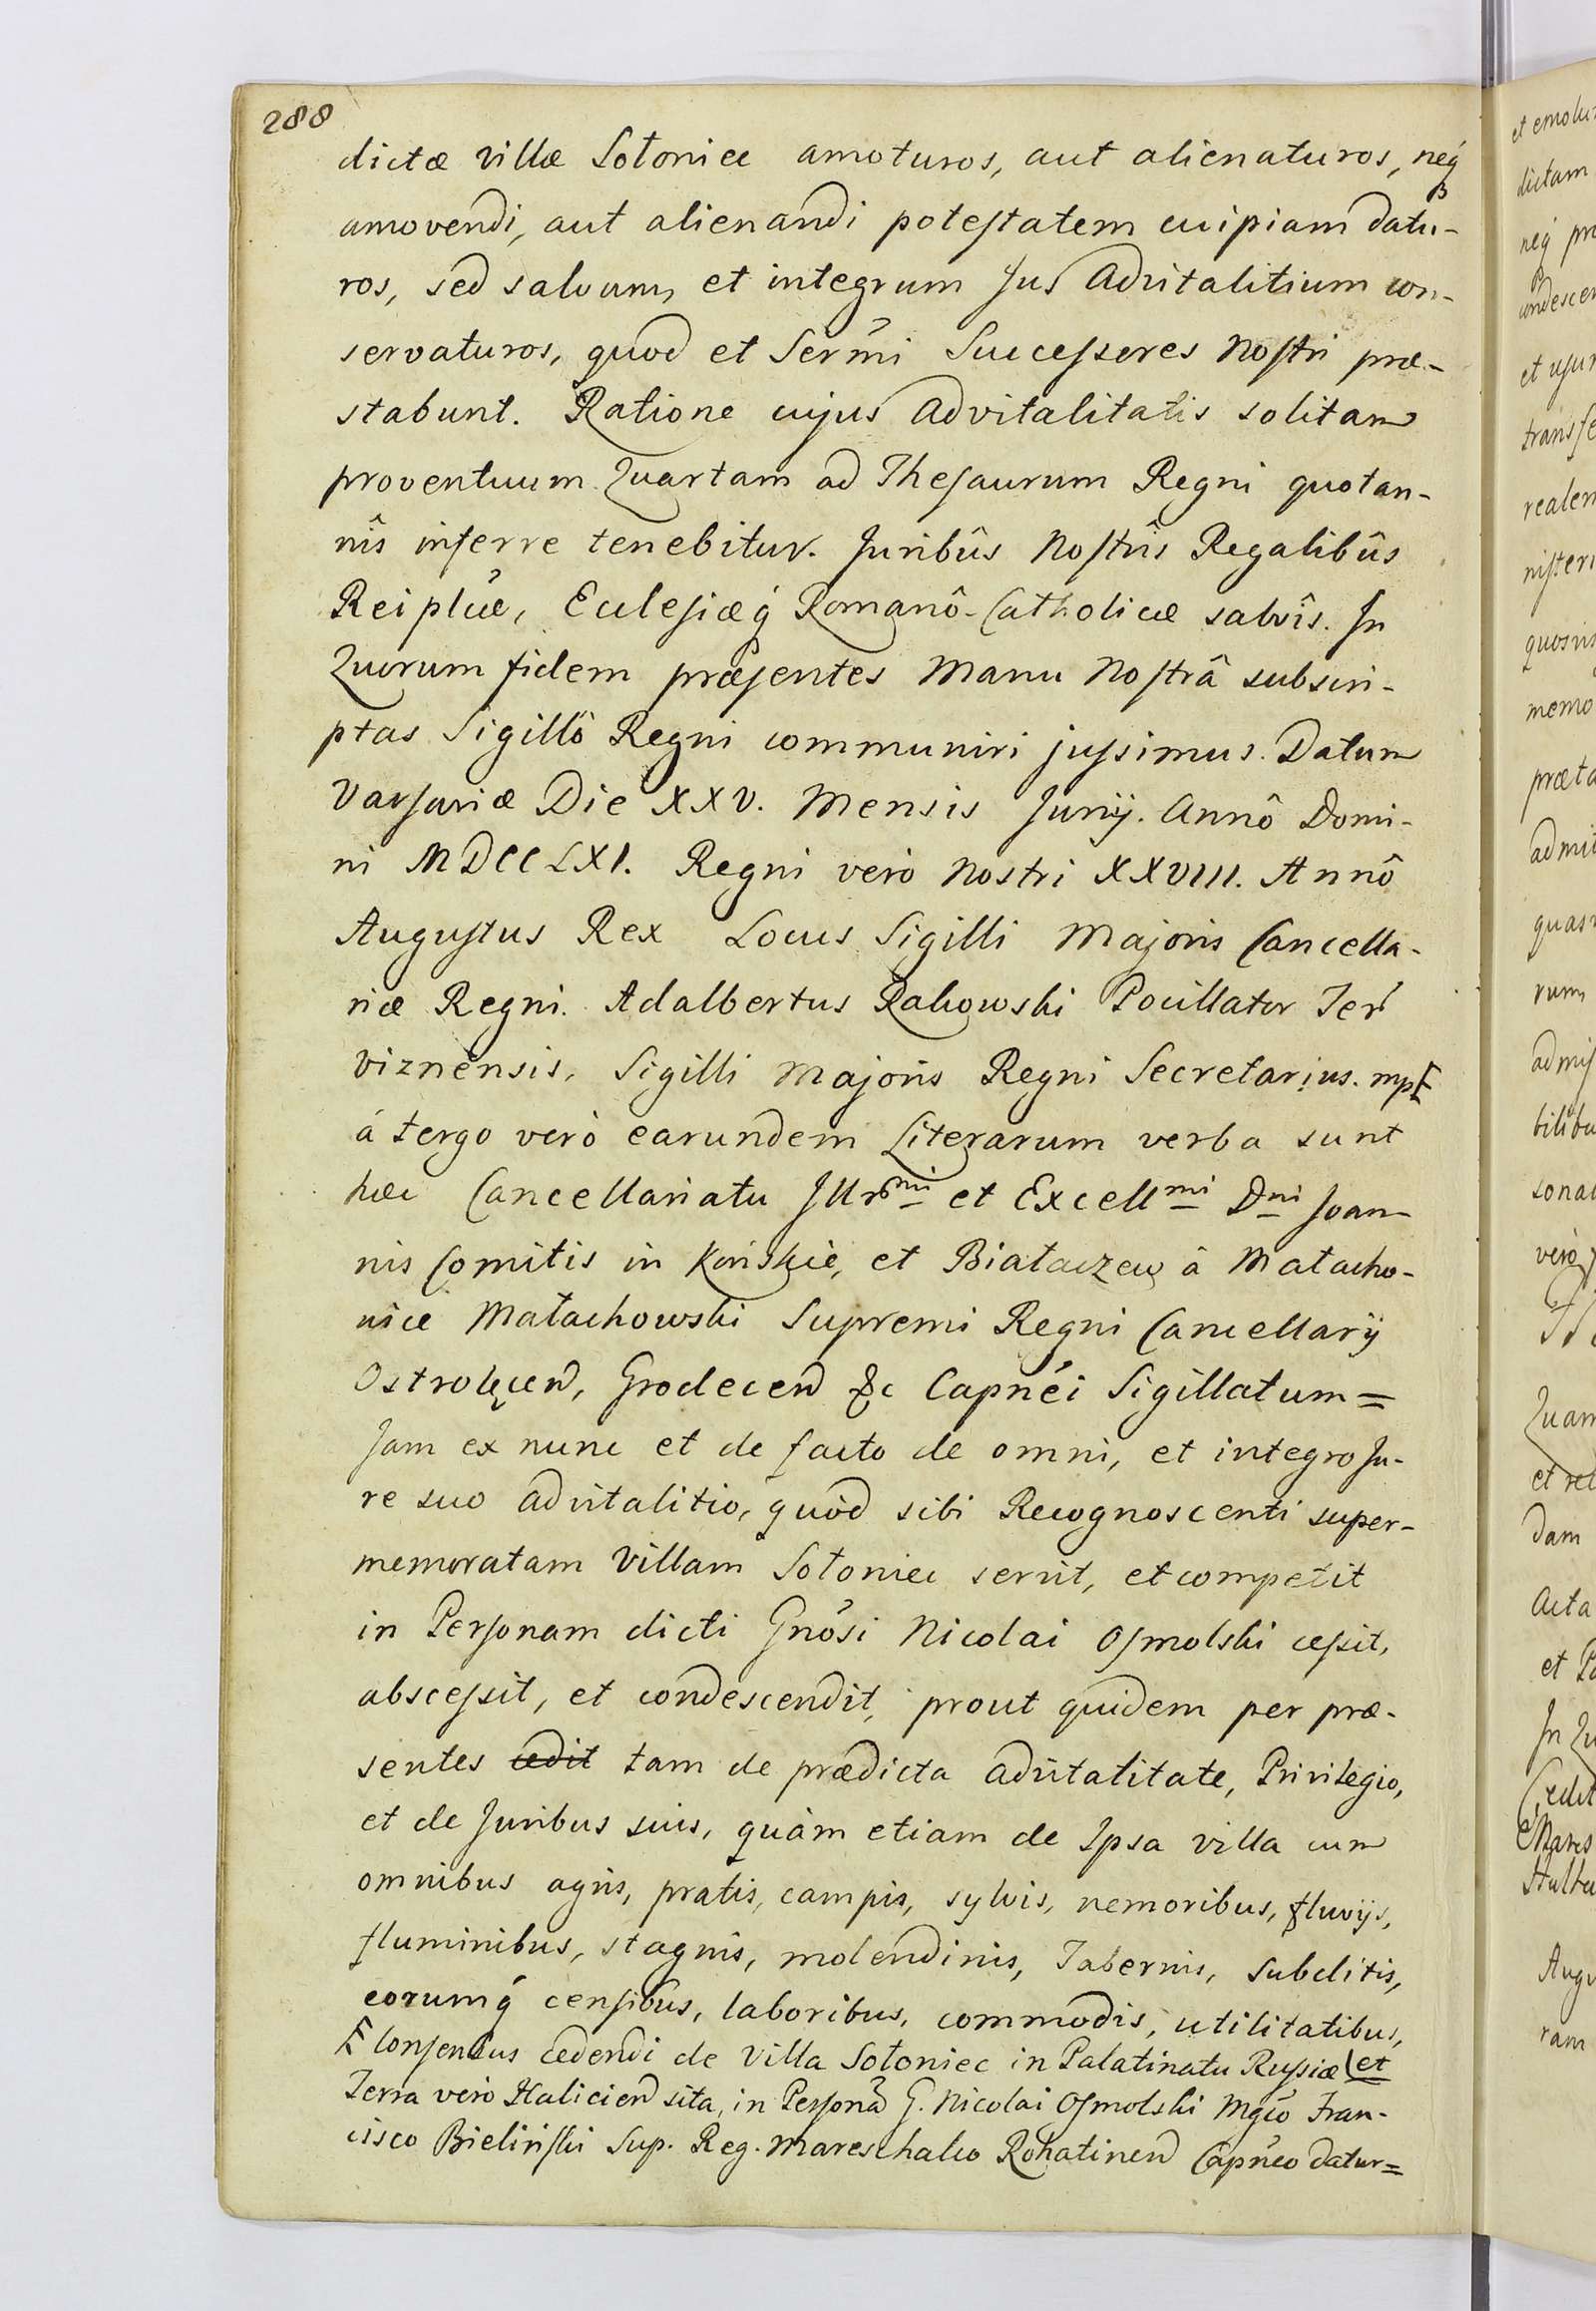 288
dictæ villæ Sołoniec amoturos, aut alienaturos, neq́
amovendi, aut alienandi potestatem cuipiam datu-
ros, sed salvum, et integrum Jus Advitalitium con-
servaturos, quod et Serm̃i Successeres Nostri præ-
stabunt. Ratione cujus Advitalitatis solitam
proventuum Quartam ad Thesaurum Regni quotan-
nîs inferre tenebitur. Juribûs Nostrîs Regalibûs
Reiplcæ, Ecclesiæq́ Romanô-Catholicæ salvîs. In
Quorum fidem præsentes Manu Nostrâ subscri-
ptas Sigillô Regni communiri jussimus. Datum
Varsaviæ Die XXV. Mensis Junij. Annô Domi-
ni MDCCLXI. Regni verò Nostri XXVIII. Annô
Augustus Rex Locus Sigilli Majoris Cancella-
riæ Regni. Adalbertus Rakowski Pocillator Ter̃
Viznensis, Sigilli Majoris Regni Secretarius. mp
á tergo verò earundem Literarum verba sunt
hæc Cancellariatu Illr̃mi et Excellmi Dni Joan-
nis Comitis in Końskie, et Białaczew â Małacho-
wice Małachowski Supremi Regni Cancellarij
Ostrołęcen, Grodecen &c Capnéi Sigillatum=
Jam ex nunc et de facto de omni, et integro Ju-
re suo advitalitio, quòd sibi Recognoscenti super-
memoratam Villam Sołoniec servit, et competit
in Personam dicti Gnõsi Nicolai Osmolski cessit,
abscessit, et condescendit, prout quidem per præ-
sentes cedit tam de prædicta advitalitate, Privilegio,
et de Juribus suis, quàm etiam de Ipsa villa cum
omnibus agris, pratis, campis, sylvis, nemoribus, fluvijs,
fluminibus, stagnis, molendinis, Tabernis, Subditis,
eorumq́ censibus, laboribus, commodis, utilitatibus,
Consensus cedendi de Villa Sołoniec in Palatinatu Russiæ et
Terra verò Halicien sita, in Personã G. Nicolai Osmolski Mgco Fran-
cisco Bieliński Sup. Reg. Mareschalco Rohatinen Capnéo datur=